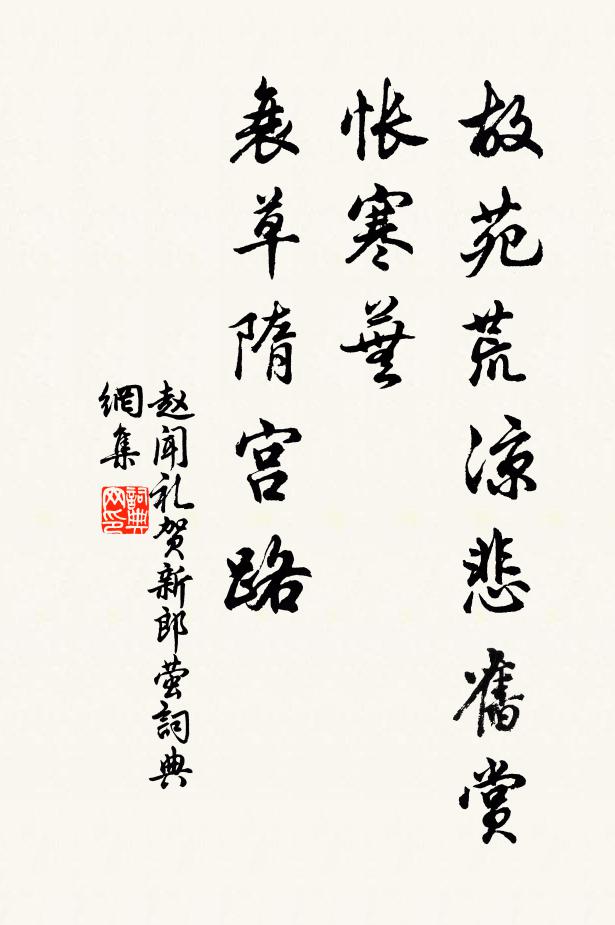 故苑荒凉悲舊賞
怅寒蕪
衰草隋宫路
赵闻礼贺新郎萤詞典
網集
詞典
网印